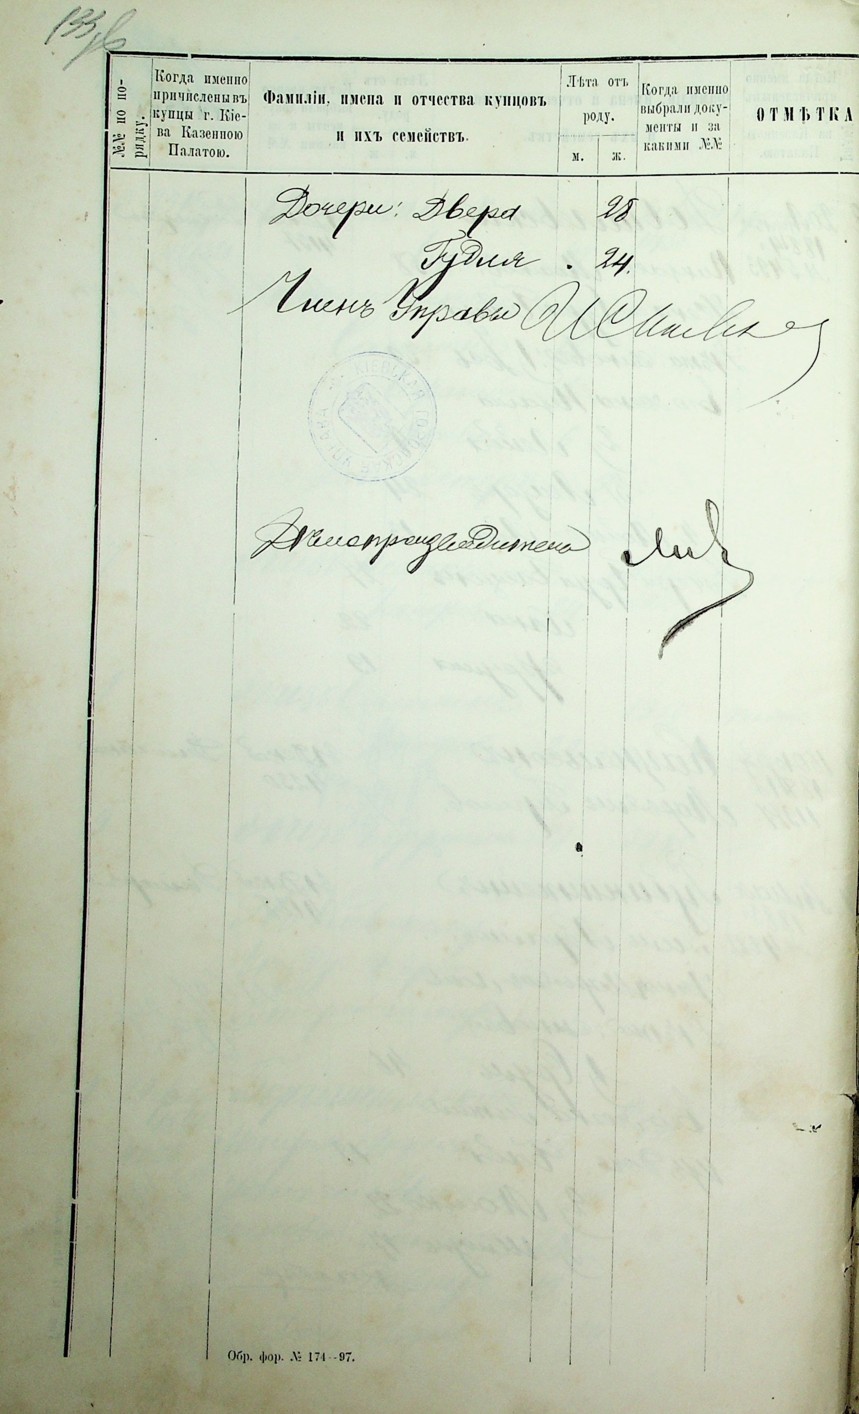 133 об
№№ по по-
рядку.
Когда именно
причислены въ
купцы г. Кіе-
ва Казенною
Палатою.
Фамиліи, имена и отчества купцовъ
и ихъ семействъ.
Лѣта отъ
роду.
м. ж.
Когда именно
выбрали доку-
менты и за
какими №№
ОТМѢТКА
Дочери: Двера 28
Гудля . 24.
Членъ Управы
КІЕВСКАЯ ГОРОДСКАЯ УПРАВА
Дѣлопроизводитель
Обр. фор. № 174--97.